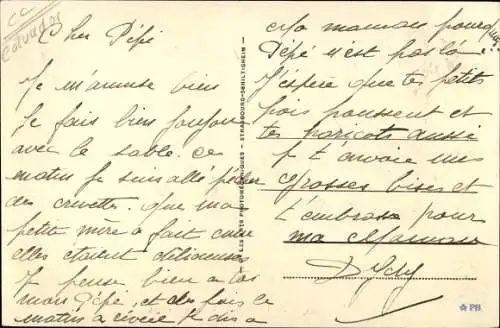 CC
Calvados
Cher Pépé
Je m'amuse bien
Je fais bien joujou
avec le sable. Ce
matin je suis allé pêcher
des crevettes. Que ma
petite mère a fait cuire
elles étaient délicieuses
Je pense bien à toi
mon Pépé, et des fois le
matin a réveil je dis a
LES ARTS PHOTOMÉCANIQUES - STRASBOURG-SCHILTIGHEIM
ma maman pourquoi
Pépé n'est pas là
J'espère que tes petits
pois poussent et
tes haricots aussi
je t'envoie mes
Grosses bises et
t'embrasse pour
ma Maman
PB